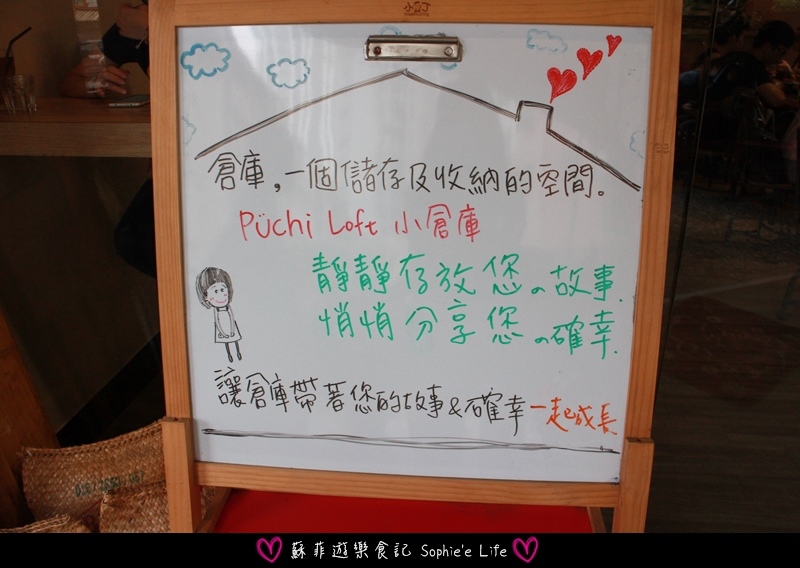 小倉庫
倉庫,一個儲存及收納的空間。
Püchi Loft 小倉庫
靜靜存放您の故事.
悄悄分享您の確幸.
讓倉庫帶著您的故事&確幸一起成長
蘇菲遊樂食記 Sophie'e Life